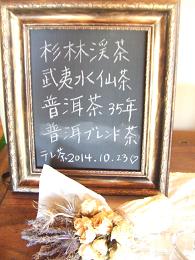 杉林渓茶
武夷水仙茶
普洱茶 35年
普洱ブレンド茶
テレ茶2014.10.23♡